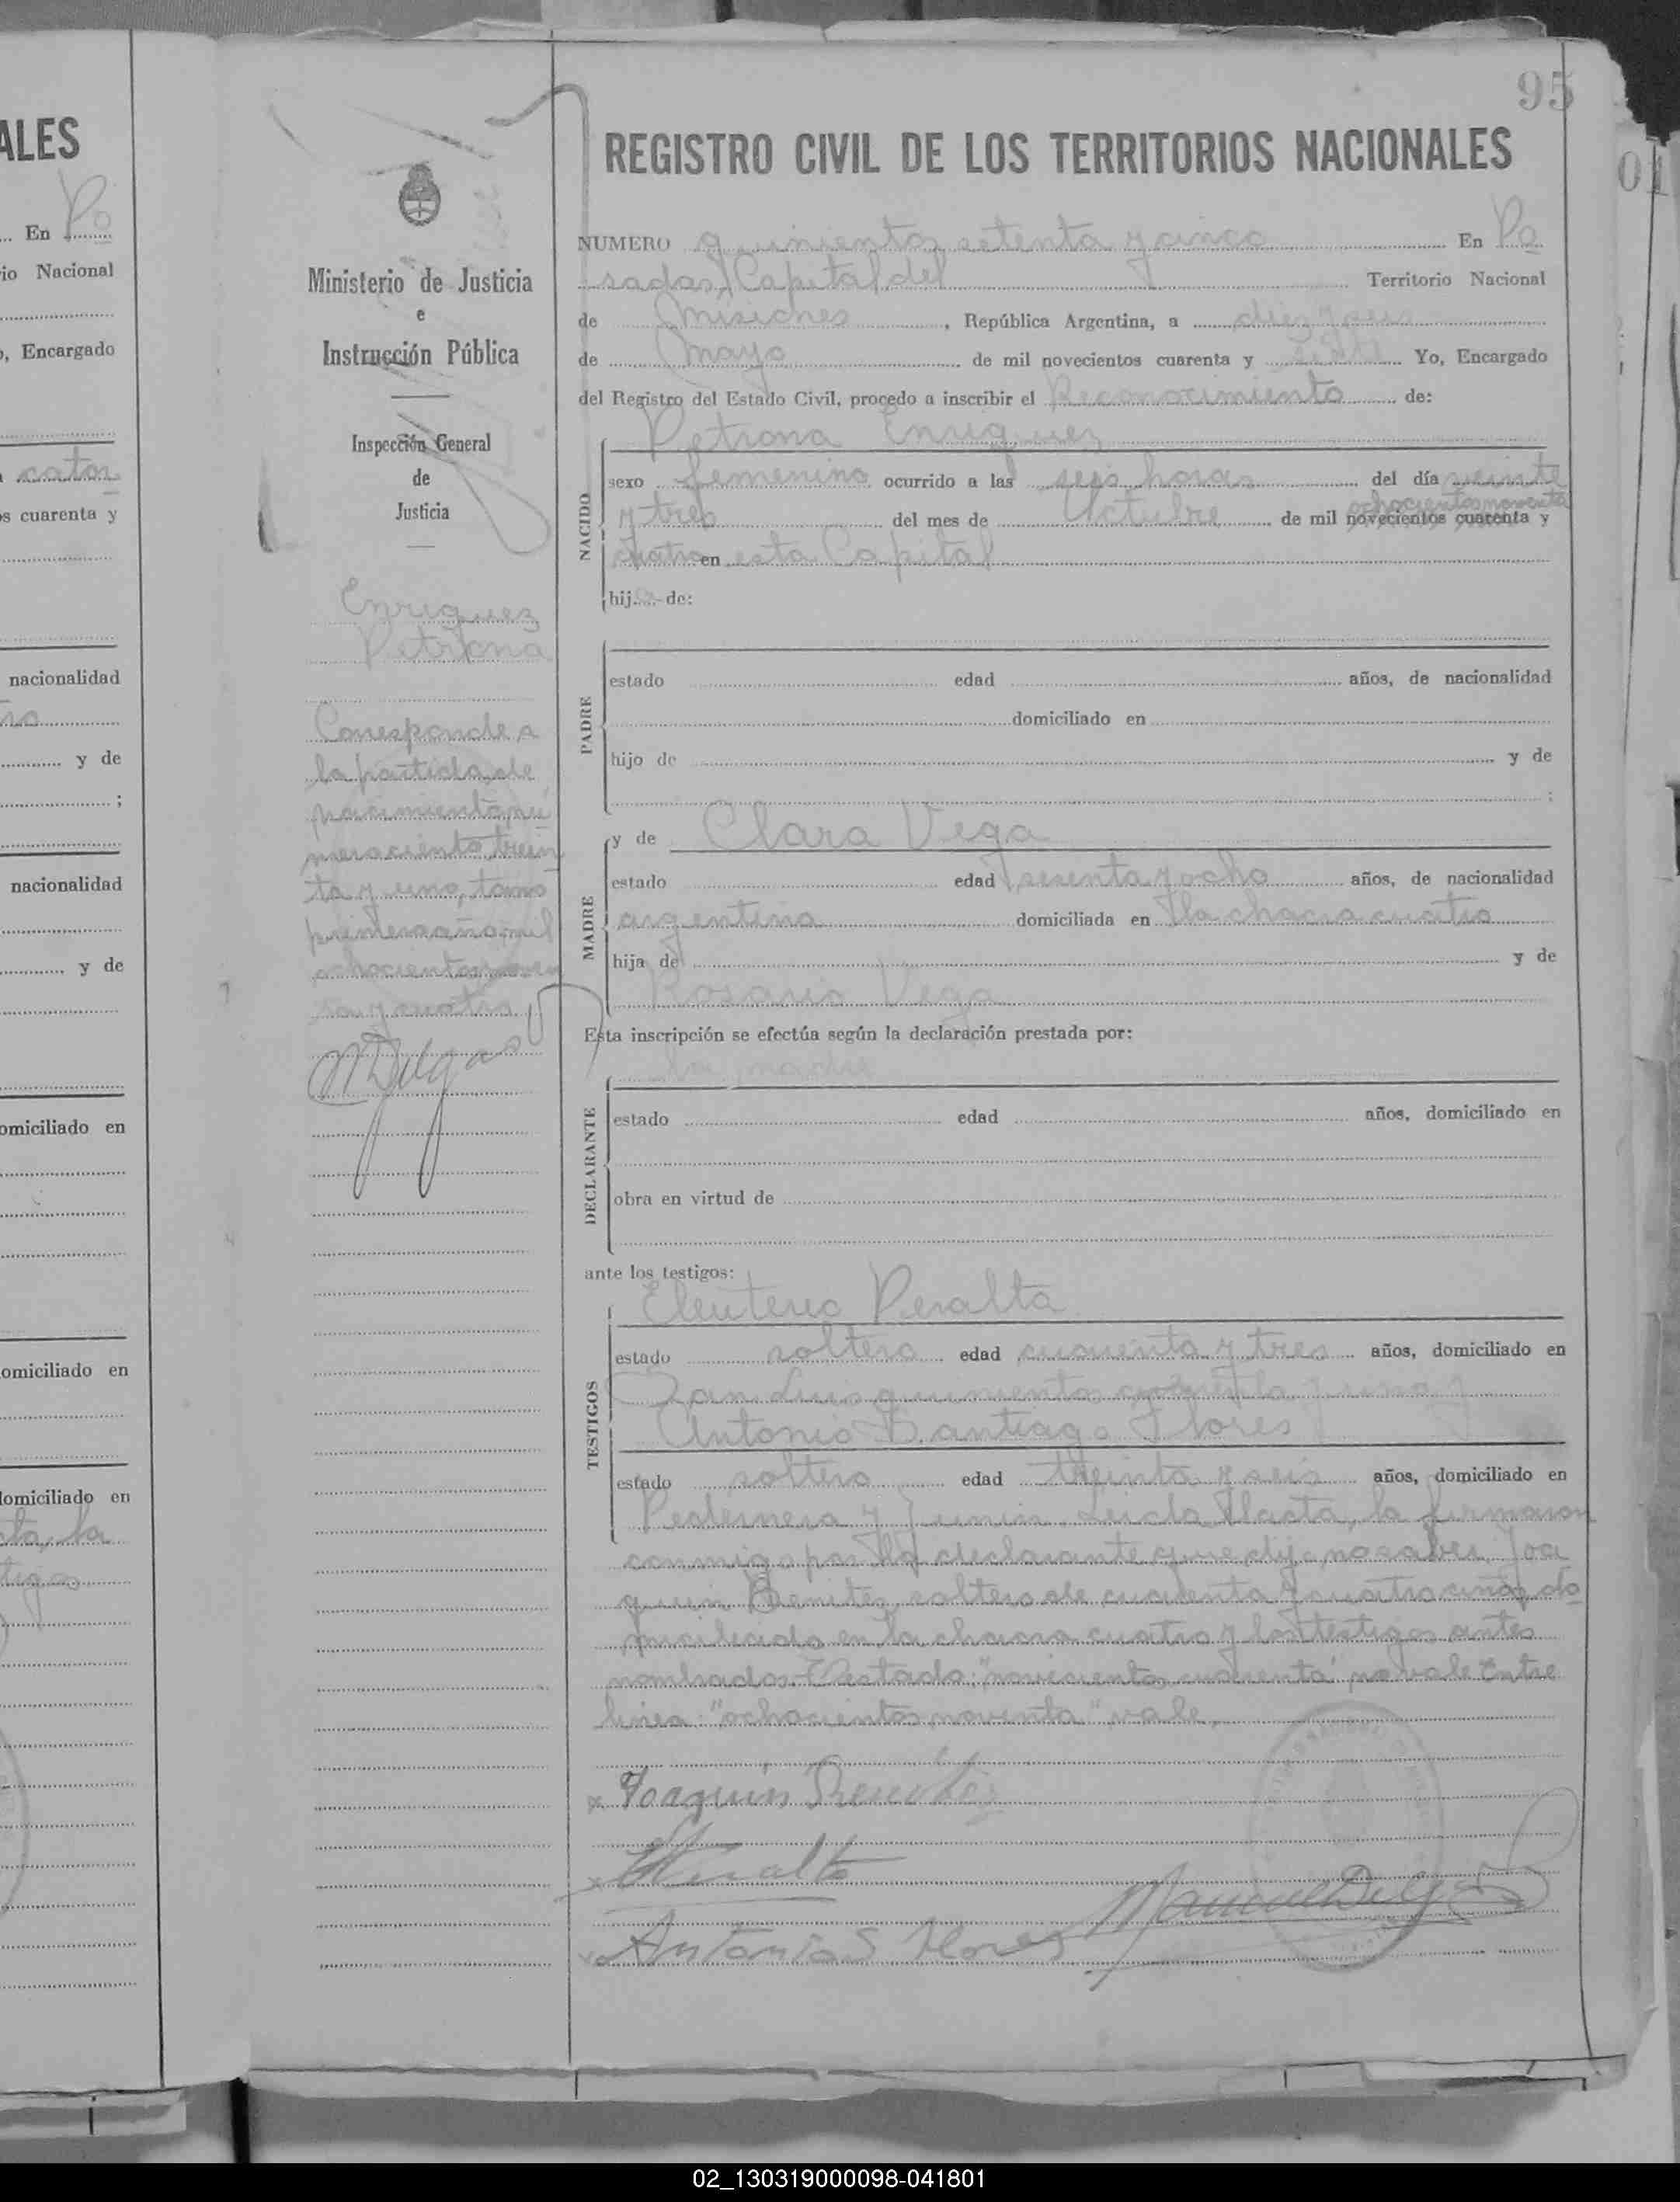 ALES
En Po
io Nacional
, Encargado
cator
s cuarenta y
nacionalidad
y de
;
nacionalidad
y de
omiciliado en
omiciliado en
omiciliado en
cta, la
tigos
95
01
REGISTRO CIVIL DE LOS TERRITORIOS NACIONALES
Ministerio de Justicia
e
Instrucción Pública
Inspección General
de
Justicia
Enriquez
Petrona
Corresponde a
la partida de
nacimiento nú
mero ciento trein
ta y uno, tomo
primero año mil
ochocientos noven
ta y cuatro
MDelgado
NUMERO quinientos setenta y cinco En Po
sadas, Capital del Territorio Nacional
de Misiones, República Argentina, a diez y seis
de mayo de mil novecientos cuarenta y Yo, Encargado
del Registro del Estado Civil, procedo a inscribir el Reconocimiento de:
Petrona Enriquez
NACIDO
sexo femenino ocurrido a las seis horas del día veinte
ochocientos noventa
y tres del mes de Octubre de mil novecientos cuarenta y
cuatro en esta Capital
hija de:
PADRE
estado edad años, de nacionalidad
domiciliado en
hijo de y de
;
y de Clara Vega
MADRE
estado edad sesenta y ocho años, de nacionalidad
argentina domiciliada en la chacra cuatro
hija de y de
Rosario Vega
Esta inscripción se efectúa según la declaración prestada por:
la madre
DECLARANTE
estado edad años, domiciliado en
obra en virtud de
ante los testigos:
Eleuterio Peralta
TESTIGOS
estado soltero edad cuarenta y tres años, domiciliado en
San Luis quinientos
Antonio Santiago Flores
estado soltero edad treinta y seis años, domiciliado en
Pedernera y Junin. Leida el acta, la firmaron
conmigo por la declarante que dijo no saber, Joa
quin Benitez, soltero de cuarenta y cuatro años, do
miciliado en la chacra cuatro y los testigos antes
nombrados. Testado: "novecientos cuarenta" no vale. Entre
linea: "ochocientos noventa" vale.
x Joaquin Benitez
x EPeralta
Manuel Delgado
x Antonio S Flores
02_130319000098-041801